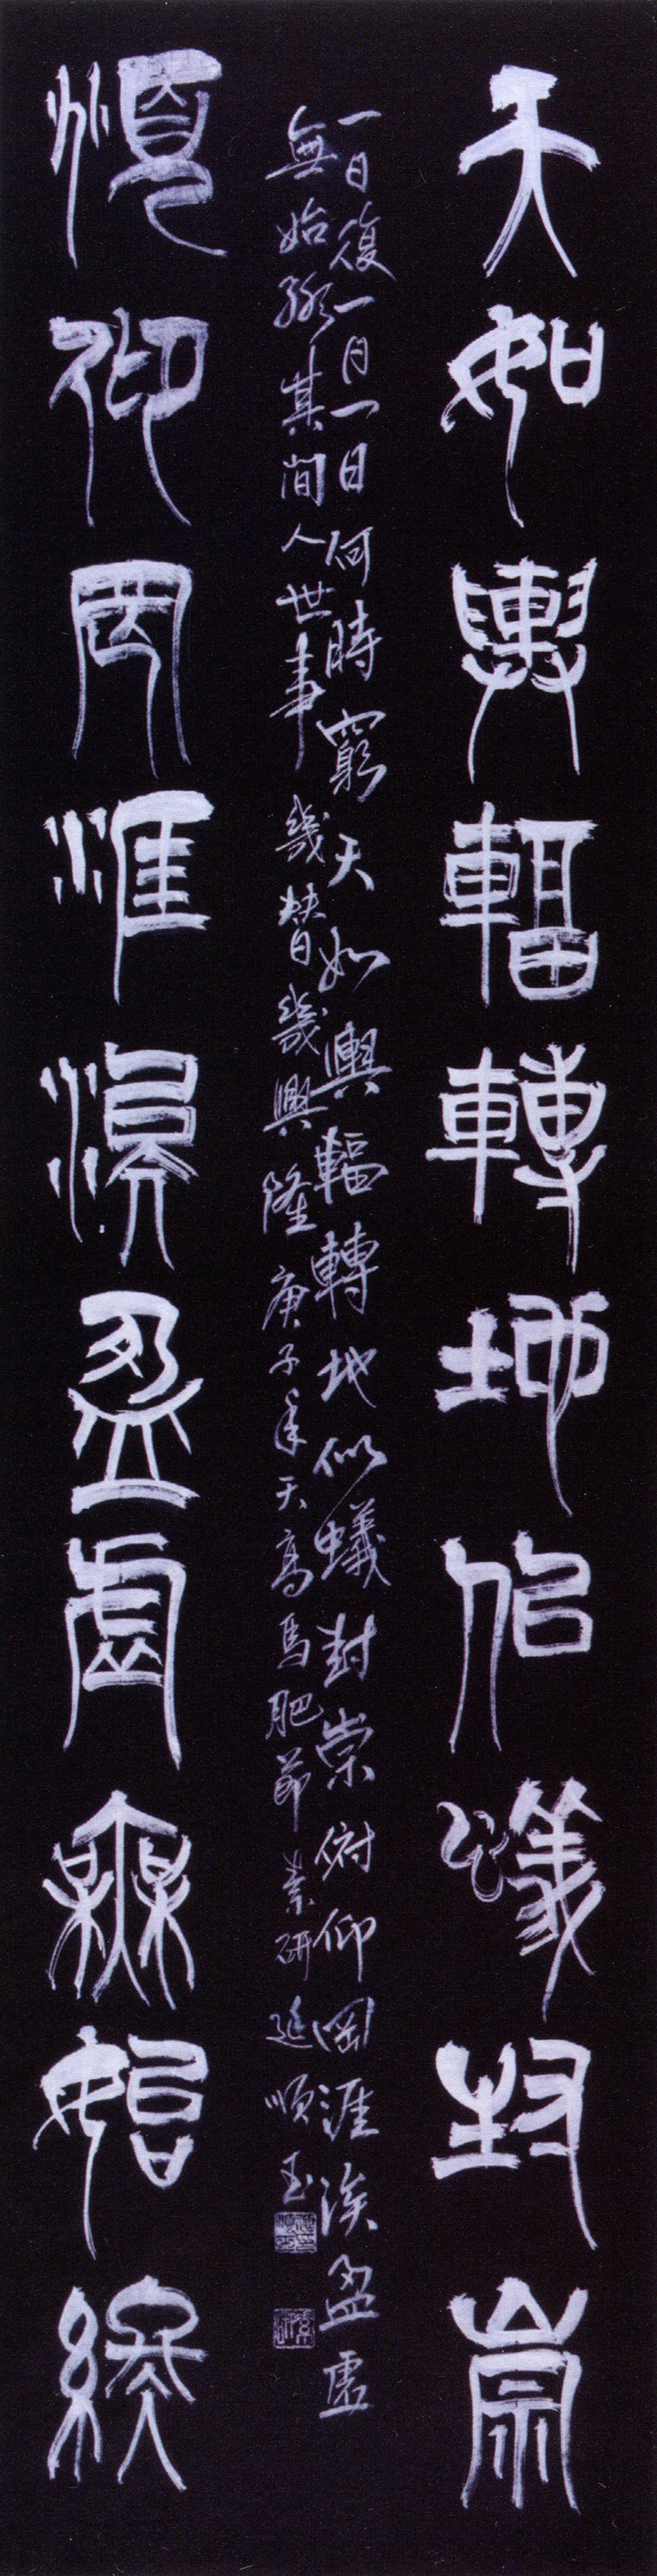 天如輿輻轉地似蟻封崇
頫仰罔涯涘盈虛無始終
一日復一日一日何時窮天如輿輻轉地似蟻封崇俯仰罔涯涘盈虛
無始終其間人世事幾替幾興隆庚子年天高馬肥節素研延順玉